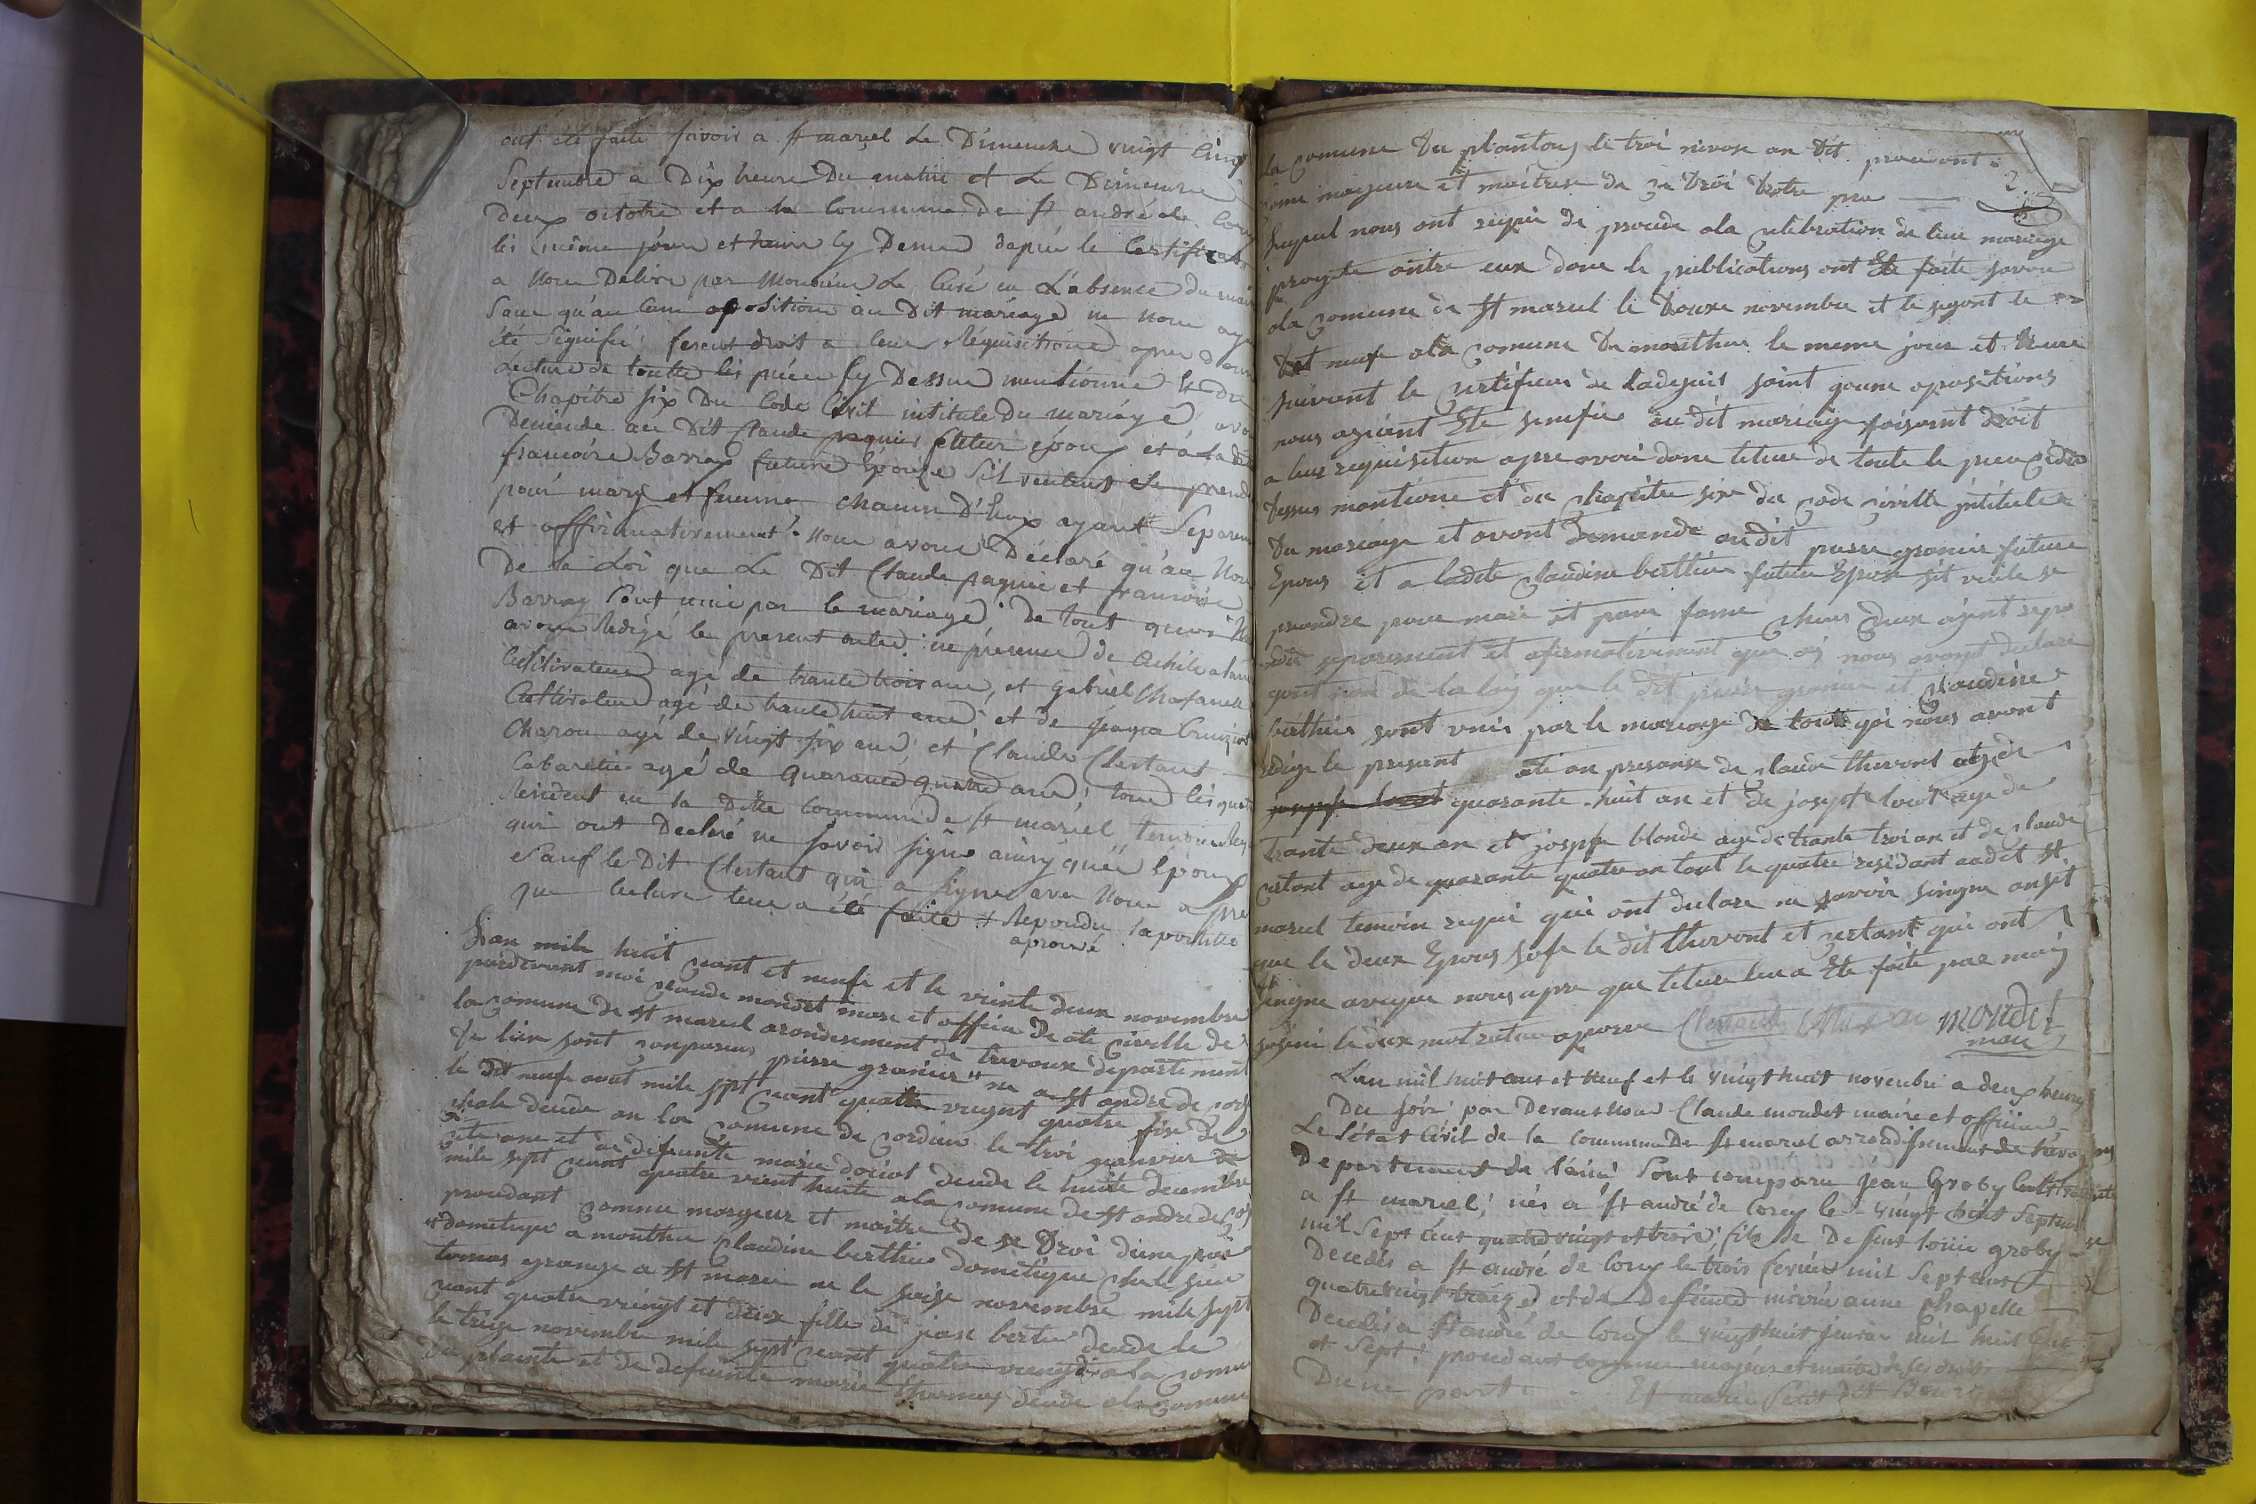 ont été faite savoir a St marcel Le Dimenche vingt cinq
Septembre a Dix heure Du matin et Le Dimenche
Deux octobre et a la Commune de St andré de Corcy
les même jour et heure cy Desus dapré le Certificat
a Nous Delivré par Monsieur Le Curé en L'absence du maire
Sans qu'au cune oposition au Dit mariage ne nous aye
été Signifié; fesent droit a leur Réquisitione apres avoir
Lecture de toutte les piéce cy Dessus mentionné et du
Chapitre Six Du Code Civil intitulé Du mariage, avons
Demende au Dit Claude paquier futur époux et à la dite
francoise Barray future Epouse S'il veulent Se prendre
pour mary et femme chacun D'Eux ayant Separement
et affirmativement # Nous avons Déclaré qu'au Nom
De la Loi que Le Dit Claude paquier et francoise
Barray Sont unie par le mariage; de tout quoi Nous
avons Redigé le present acte; en présence de Achile
Cultivateur agé de trante trois ans, et Gabriel Chafanel
Cultivateur agé de trante huit ans; et de
Charon agé de vingt Six ans; et Claude Clertant
Cabaretier agé de Quarante quatre ans; tous les quatre
Resident en la Ditte Commune de St marcel temoin
qui ont Declaré ne Savoir Signé ainsy que l'époux
Sauf le Dit Clertant qui a Signé avec Nous apre
que lecture leur a été faite # Repondu lapostille
aprouvé
Lan mile huit cent et neufe et le veinte deux novembre
pardevant moi claude mondet mare et officie De ate civille de
la comune de st marcel arondesement de trevoux departement
De lien sont conpareus pierre granier # ne a st andre de corsi
le dit neufe aout mile sept cent quatre veingt quatre fise de
deude an la comune de cordieu le troi janvier de
cete ane et de defeunte marie dociot deude le huite decembre
mile sept cent quatre vient huite a la comune de st andre de cor
proudant comme magieur et maitre de se Droi dune par
# dometique a monthu Claudine berthie dometique ches le sieu
tomas grange a st marcel ne le saise novembre mile sept
cent quatre veingt et deux fille de jan bertie deude le
le treize novembre mile sept cent quatre veingt a la comu
du plante et de defeunte marie thomas deude a la comune
La comune Du plantay le troi nivose an dit proudont
come majeure et maitrese de se droi dotre par
lequel nous ont requi de procede a la celebration de leur mariage
proyete antre eux donc le publications ont Ete faite savoir
a la comune de st marcel le douze novembre et le segont le
dit neufe a la comune De monthue le meme jour et heure
suivant le certificat de ladejoit saint quune opositions
nous agiant Ete sinnifie au dit mariage faisant droit
a leur requisition apre avoir done leteure de toute le piece cidesu
dessus mantione et du chapitre sixe du code civille intitule
Du mariage et avont Demande audit pierre granier future
Epous et a ladite claudine berthier future Epose sil veule se
prandre pour mari et pour fame chacun deux ajent repo
separement et afirmativement que oi nous avons declare
quau nom de la loy que le dit pierre granier et claudine
berthier sont unis par le mariage de tout qoi nous avont
redige le present ate an presanse de claude thevont age de
quarante huit an et de josepfe louet age de
trante deux an et josepfe blonde age de trante troi an et de claude
certant age de quarante quatre an tout le quatre residant audit st
marcel temoin requi qui ont declare ne savoir singne ansit
que le deux Epous sofe le dit thevont et certant qui ont
singne aveque nous apre que leteure leur a Ete faite par moi
le deux mot aprove Clertant mondet
maire
Lan mil huit cent et neuf et le vingt huit novembre a deux heures
Du soir par Devant nous Claude mondet maire et officier
De Létat Civil de la Commune De St marcel arrondissement de trevoux
Departement de l'ain Sont comparu jean Groby Cultivateur
a St marcel; nés a St andré de Corcy le vingt huit Septembre
mil Sept cent quatre vingt et trois; fils de Defunt louis groby
Decedés a St andré de Corcy le trois fevrier mil Sept cent
quatre vingt treize et de Defunte marie anne Chapelle
Decedés a St andré de Corcy le vingt huit mil huit cent
et Sept; procedant comme majeur et maitre de ses droit
Dune part. Et marie